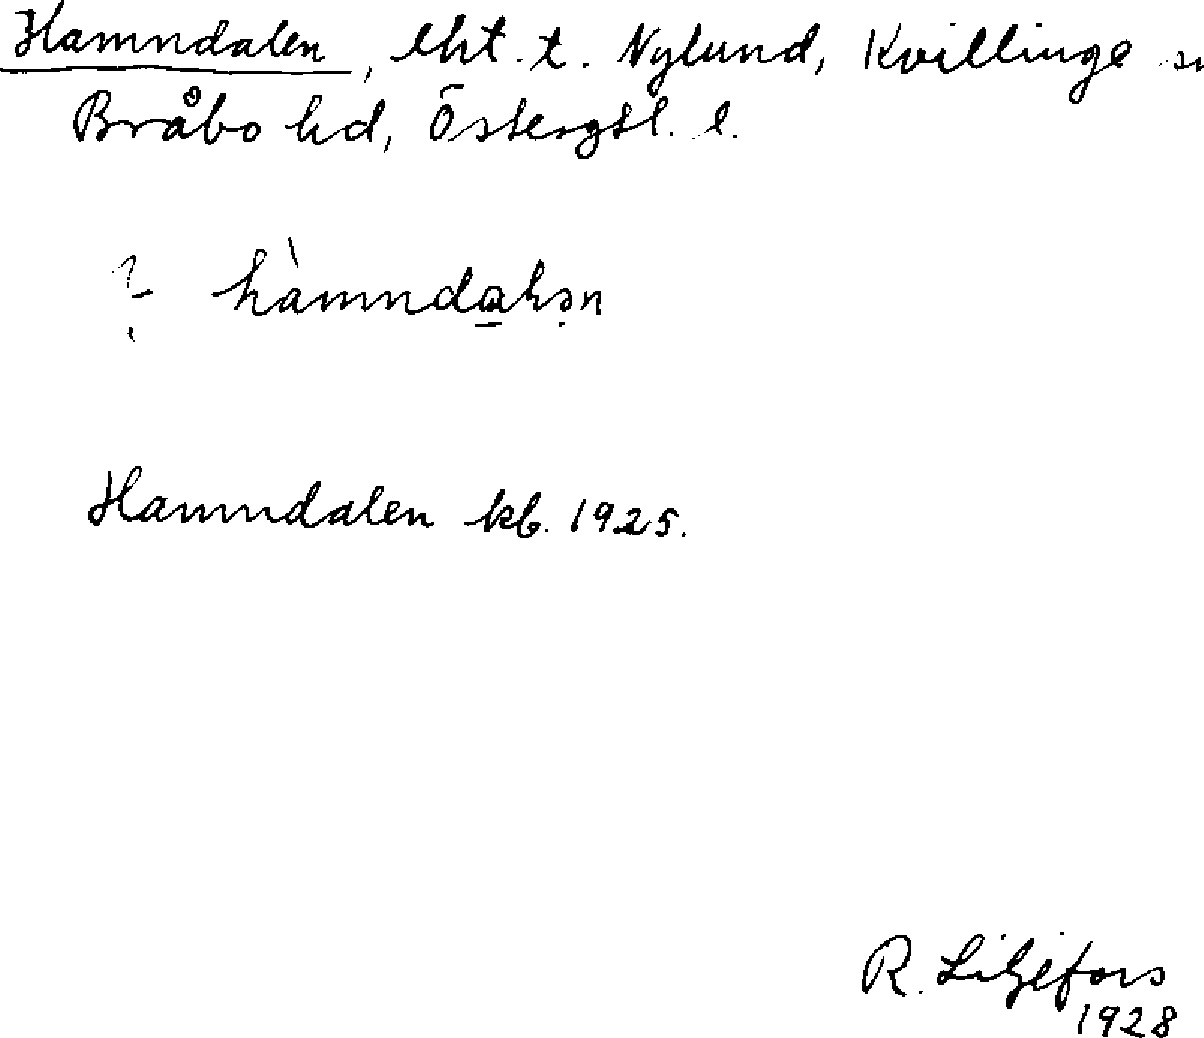 Hamndalen, lht. t. Nylund, Kvillinge sn
Bråbo hd, Östergtl. l.
? hàmndalən
Hamndalen kb. 1925.
R. Liljefors
1928